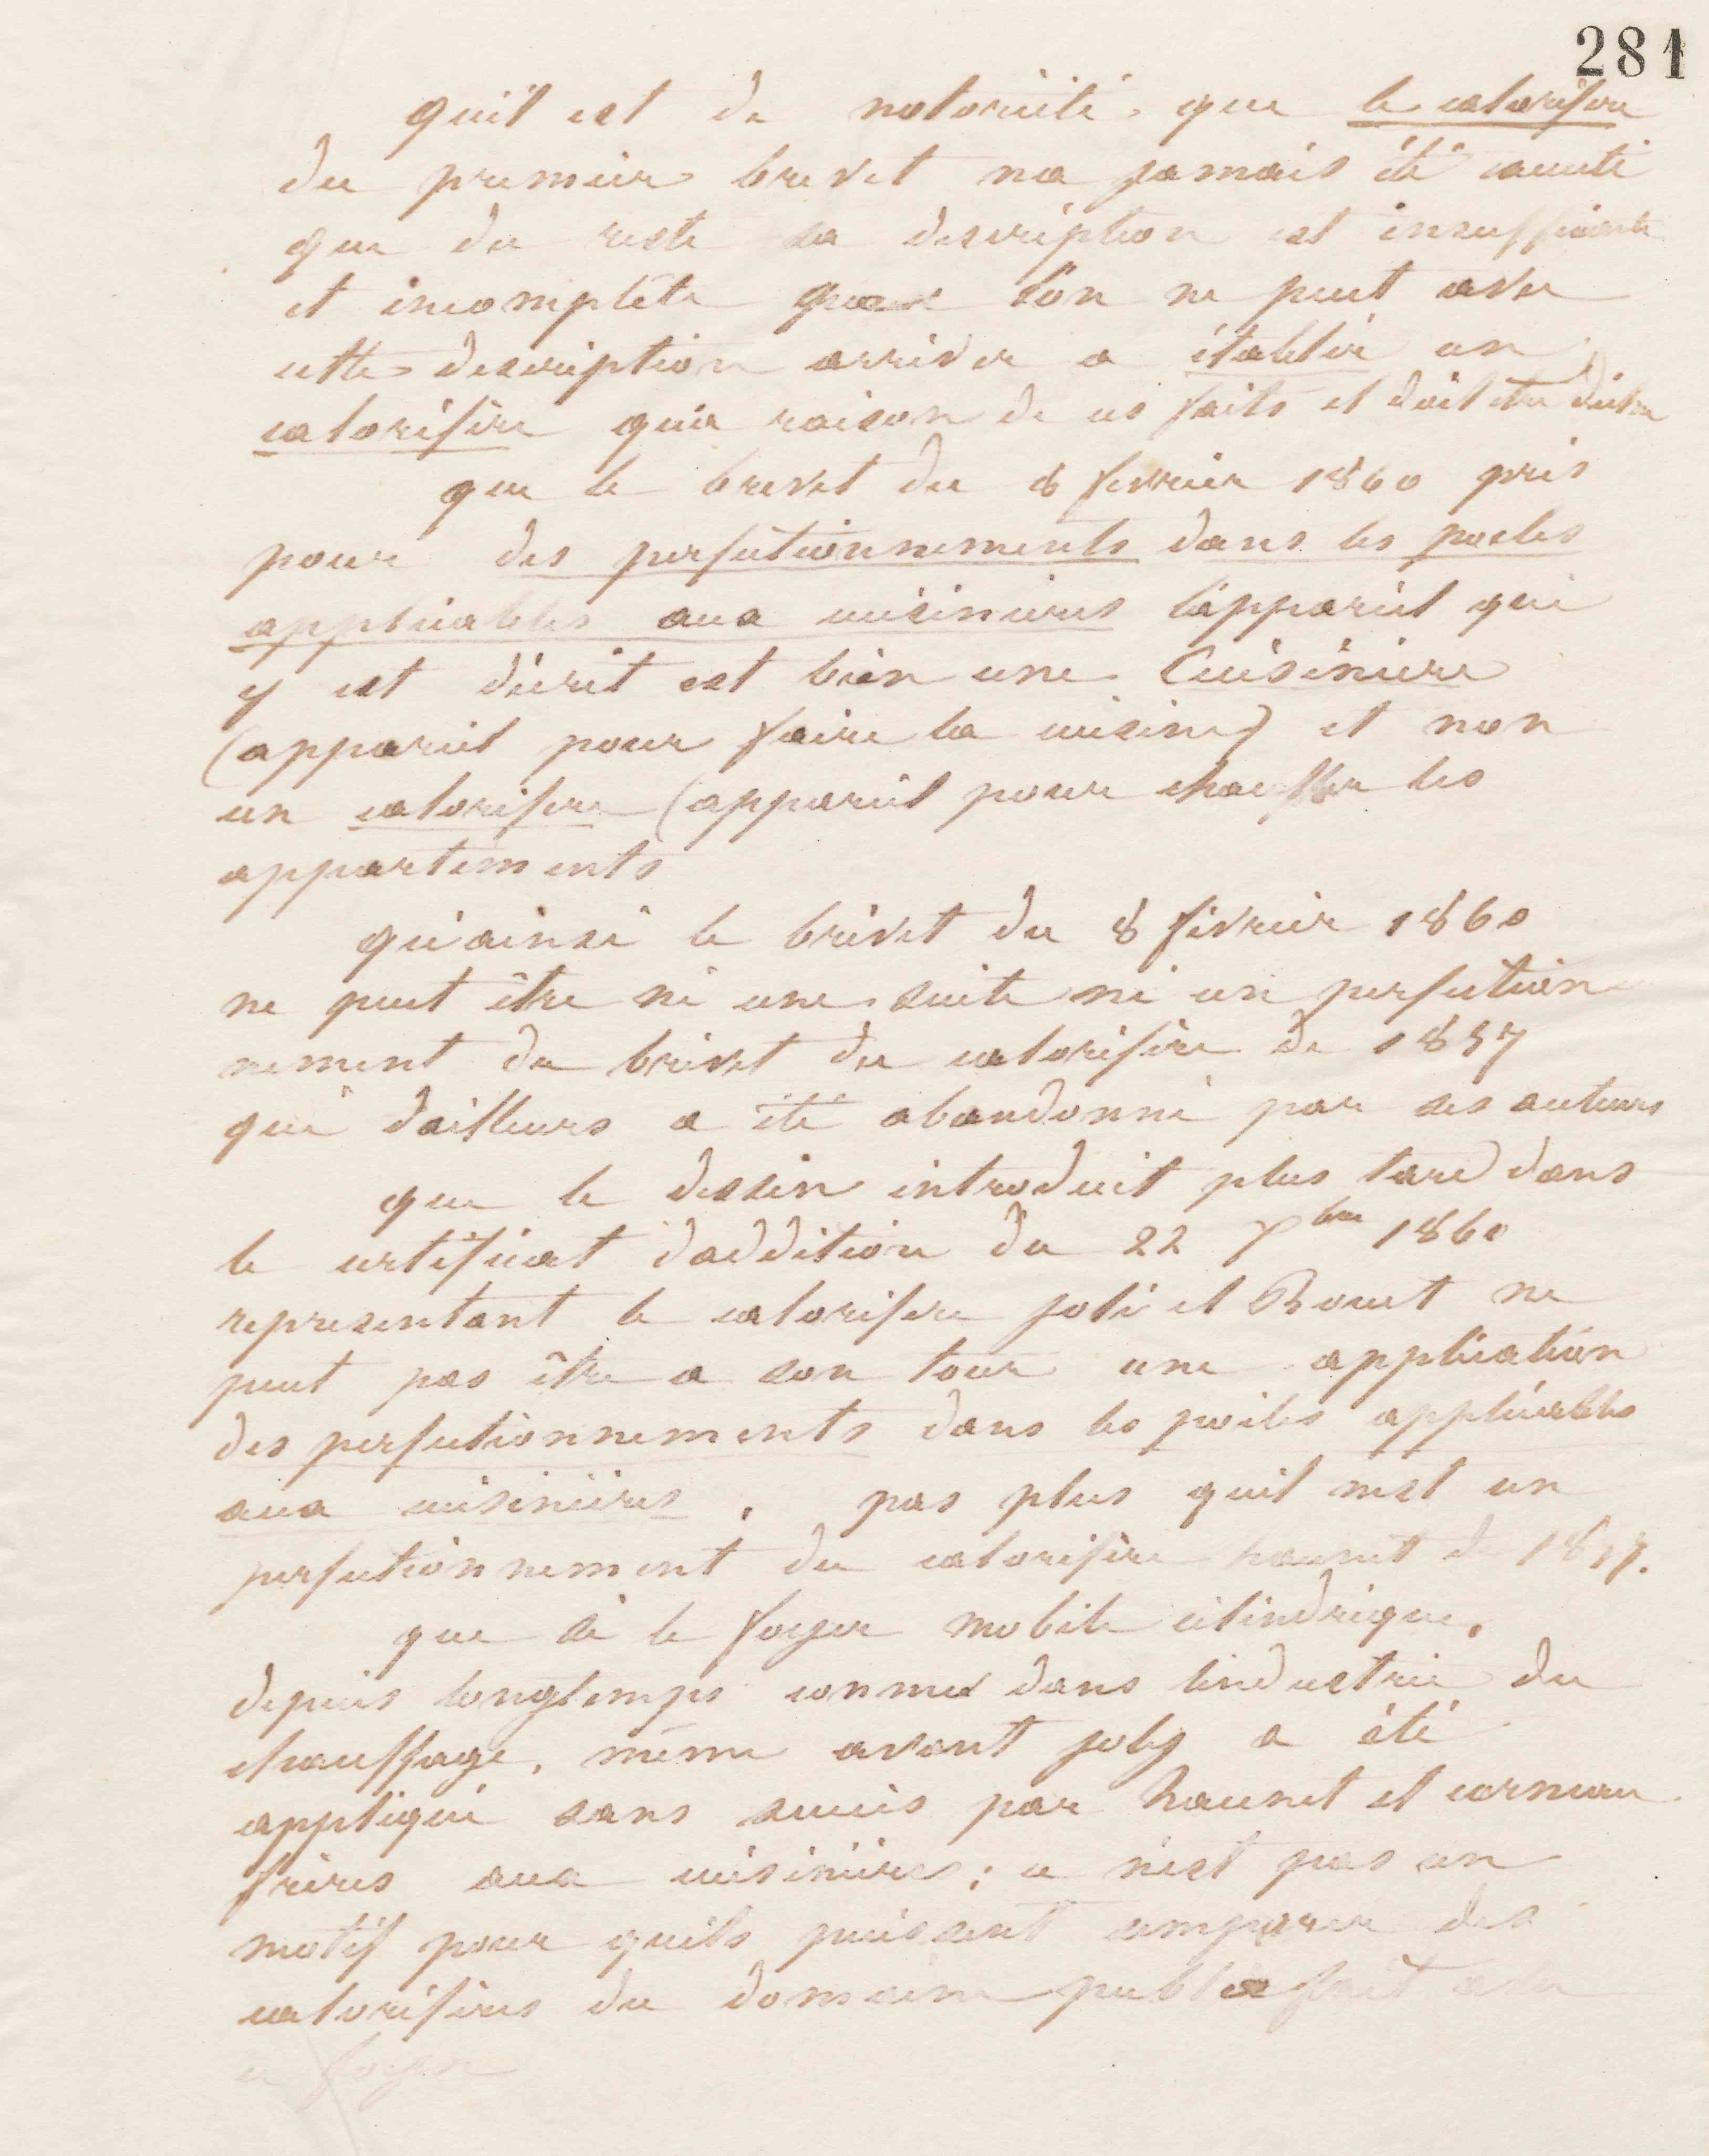 281
quil est de notorieité que le calorifere
du premier brevet na jamais été executé
que du reste sa description est insuffisante
et incomplète que l'on ne peut avec
cette description arriver a établir un
calorifère qu'a raison de ces faits il doit être déchu
que le brevet du 8 fevrier 1860 pris
pour des perfectionnements dans les poeles
applicables aux cuisinieres l'appareil qui
y est décrit est bien une Cuisiniere
(appareil pour faire la cuisine) et non
un calorifere (appareil pour chauffer les
appartements
qu'ainsi le brevet du 8 février 1860
ne peut être ni une suite ni un perfection
nement du brevet du calorifère de 1857
qui dailleurs a été abandonné par ses auteurs
que le dessin introduit plus tard dans
le certificat d'addition du 22 7bre 1860
representant le calorifere joli et Bouet ne
peut pas être a son tour une application
des perfectionnements dans les poeles applicables
aux cuisinières, pas plus quil nest un
perfectionnement du calorifère haunet de 1857.
que si le foyer mobile cilindrique,
depuis longtemps connu dans lindustrie du
chauffage, même avant joly a été
appliqué sans succès par haunet et corneau
frères aux cuisinières; ce n'est pas un
motif pour quils puissent emparer des
calorifères du domaine public fait avec
ce foyer